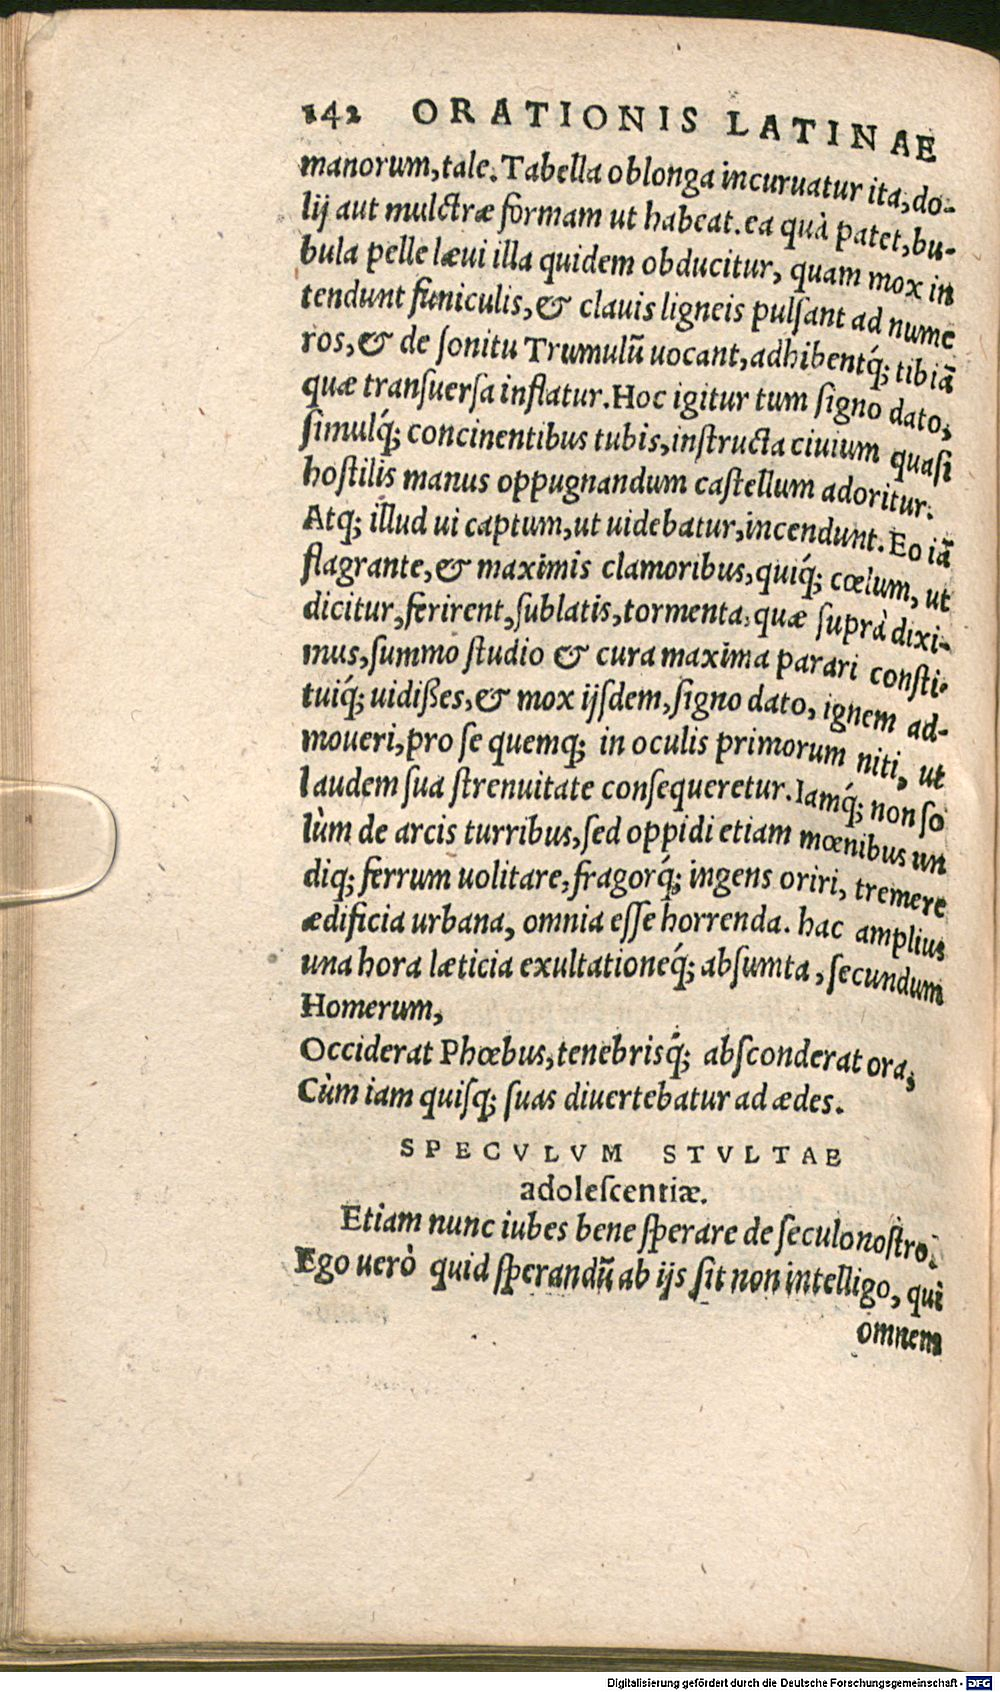 142 ORATIONIS LATINAE
manorum, tale. Tabella oblonga incuruatur ita, do-
lij aut mulctræ formam ut habeat. ea quà patet, bu-
bula pelle læui illa quidem obducitur, quam mox in
tendunt funiculis, & clauis ligneis pulſant ad nume
ros, & de ſonitu Trumulū uocant, adhibentq́; tibiā
quæ tranſuerſa inflatur. Hoc igitur tum ſigno dato,
ſimulq́; concinentibus tubis, inſtructa ciuium quaſi
hoſtilis manus oppugnandum caſtellum adoritur.
Atq; illud ui captum, ut uidebatur, incendunt. Eo iā
flagrante, & maximis clamoribus, quiq́; cœlum, ut
dicitur, ferirent, ſublatis, tormenta, quæ ſuprà dixi-
mus, ſummo ſtudio & cura maxima parari conſti-
tuiq́; uidiſſes, & mox ijſdem, ſigno dato, ignem ad-
moueri, pro ſe quemq; in oculis primorum niti, ut
laudem ſua ſtrenuitate conſequeretur. Iamq́; non ſo
lùm de arcis turribus, ſed oppidi etiam mœnibus un
diq; ferrum uolitare, fragorq́; ingens oriri, tremere
ædificia urbana, omnia eſſe horrenda. hac amplius
una hora læticia exultationeq́; abſumta, ſecundum
Homerum,
Occiderat Phœbus, tenebrisq́; abſconderat ora,
Cùm iam quiſq; ſuas diuertebatur ad ædes.
SPECVLVM STVLTAE
adoleſcentiæ.
Etiam nunc iubes bene ſperare de ſeculo noſtro.
Ego uerò quid ſperandū ab ijs ſit non intelligo, qui
omnem
Digitalisierung gefördert durch die Deutsche Forschungsgemeinschaft - DFG